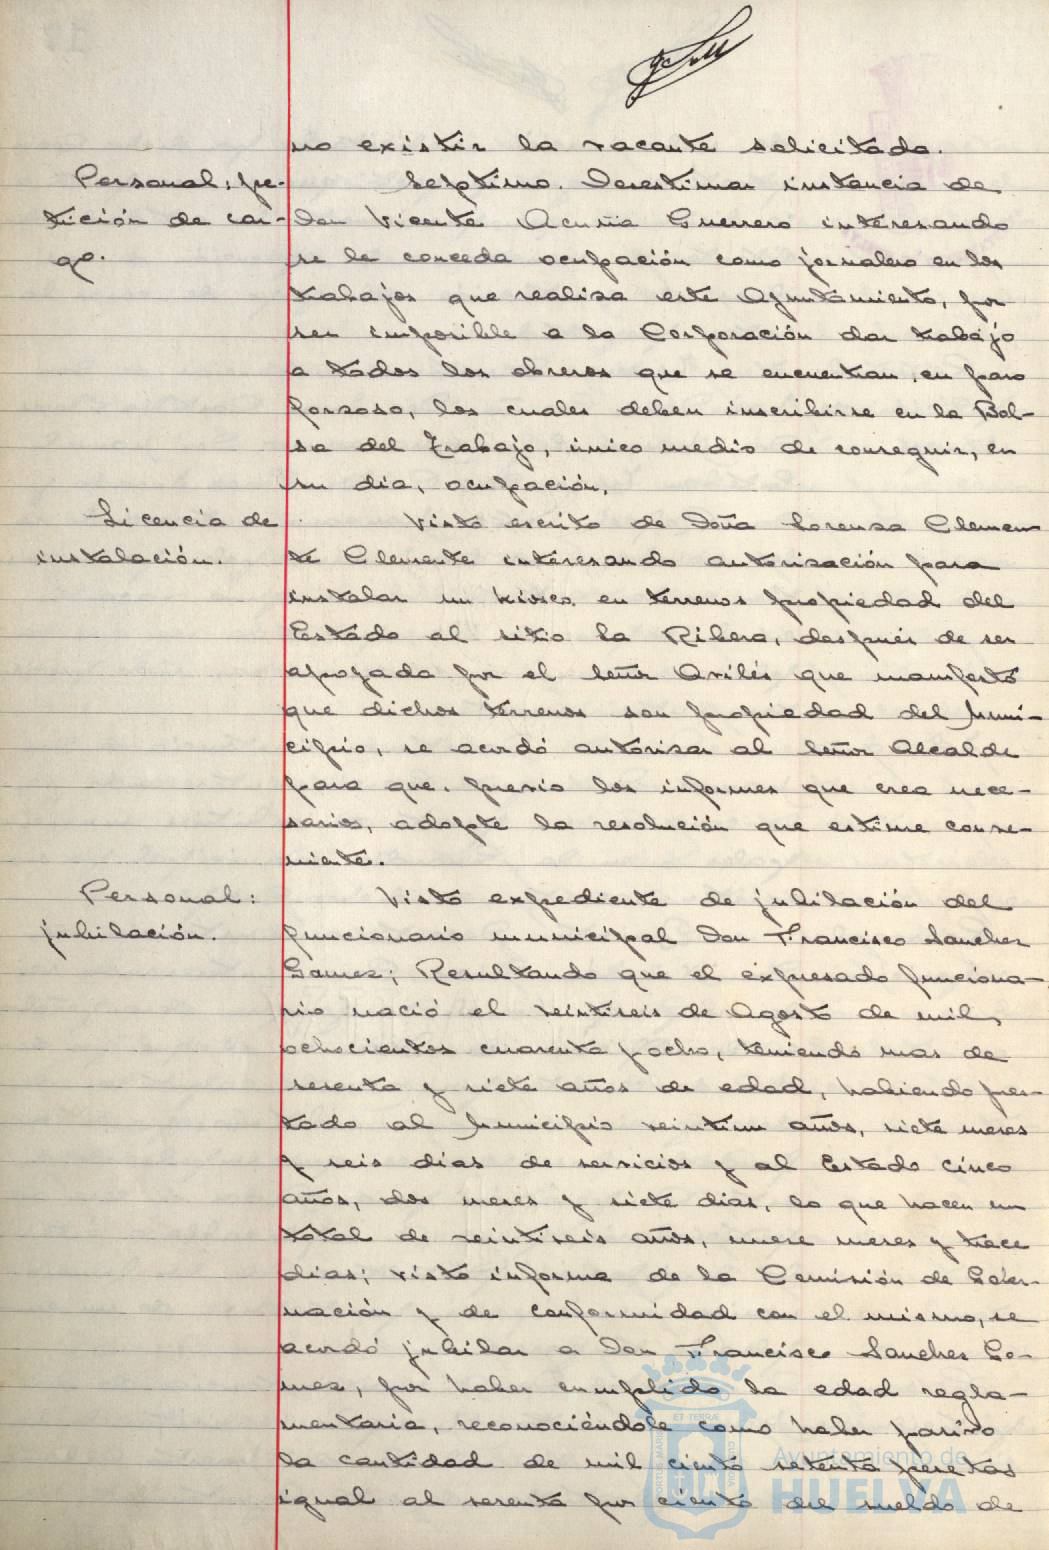 no existir la vacante solicitada.
Personal, pe-
tición de car-
go.
Septimo. Desestimar instancia de
Don Vicente Acuña Guerrero interesando
se le conceda ocupación como jornalero en los
trabajos que realisa este Ayuntamiento, por
ser imposible a la Corporación dar trabajo
a todos los obreros que se encuentran en paro
forsoso, los cuales deben inscribirse en la Bol-
sa del Trabajo, único medio de conseguir, en
su dia, ocupación.
Licencia de
instalación.
Visto escrito de Doña Lorensa Clemen
te Clemente interesando autorisación para
instalar un kiosco en terrenos propiedad del
Estado al sitio la Ribera, después de ser
apoyada por el Señor Avilés que manifestó
que dichos terrenos son propiedad del Muni-
cipio, se acordó autorisar al Señor Alcalde
para que, previo los informes que crea nece-
sarios, adopte la resolución que estime conve-
niente.
Personal:
jubilación.
Visto expediente de jubilación del
funcionario municipal Don Francisco Sanchez
Gomez; Resultando que el expresado funciona-
rio nació el veintiseis de Agosto de mil
ochocientos cuarenta y ocho, teniendo mas de
sesenta y siete años de edad, habiendo pres-
tado al Municipio veintiun años, siete meses
y seis dias de servicios y al Estado cinco
años, dos meses y siete dias, lo que hacen un
total de veintiseis años, nueve meses y trece
dias; visto informe de la Comisión de Gober-
nación y de conformidad con el mismo, se
acordó jubilar a Don Francisco Sanchez Go-
mez, por haber cumplido la edad regla-
mentaria, reconociéndole como haber pasivo
la cantidad de mil ciento setenta pesetas
igual al sesenta por ciento del sueldo de
Ayuntamiento de
HUELVA